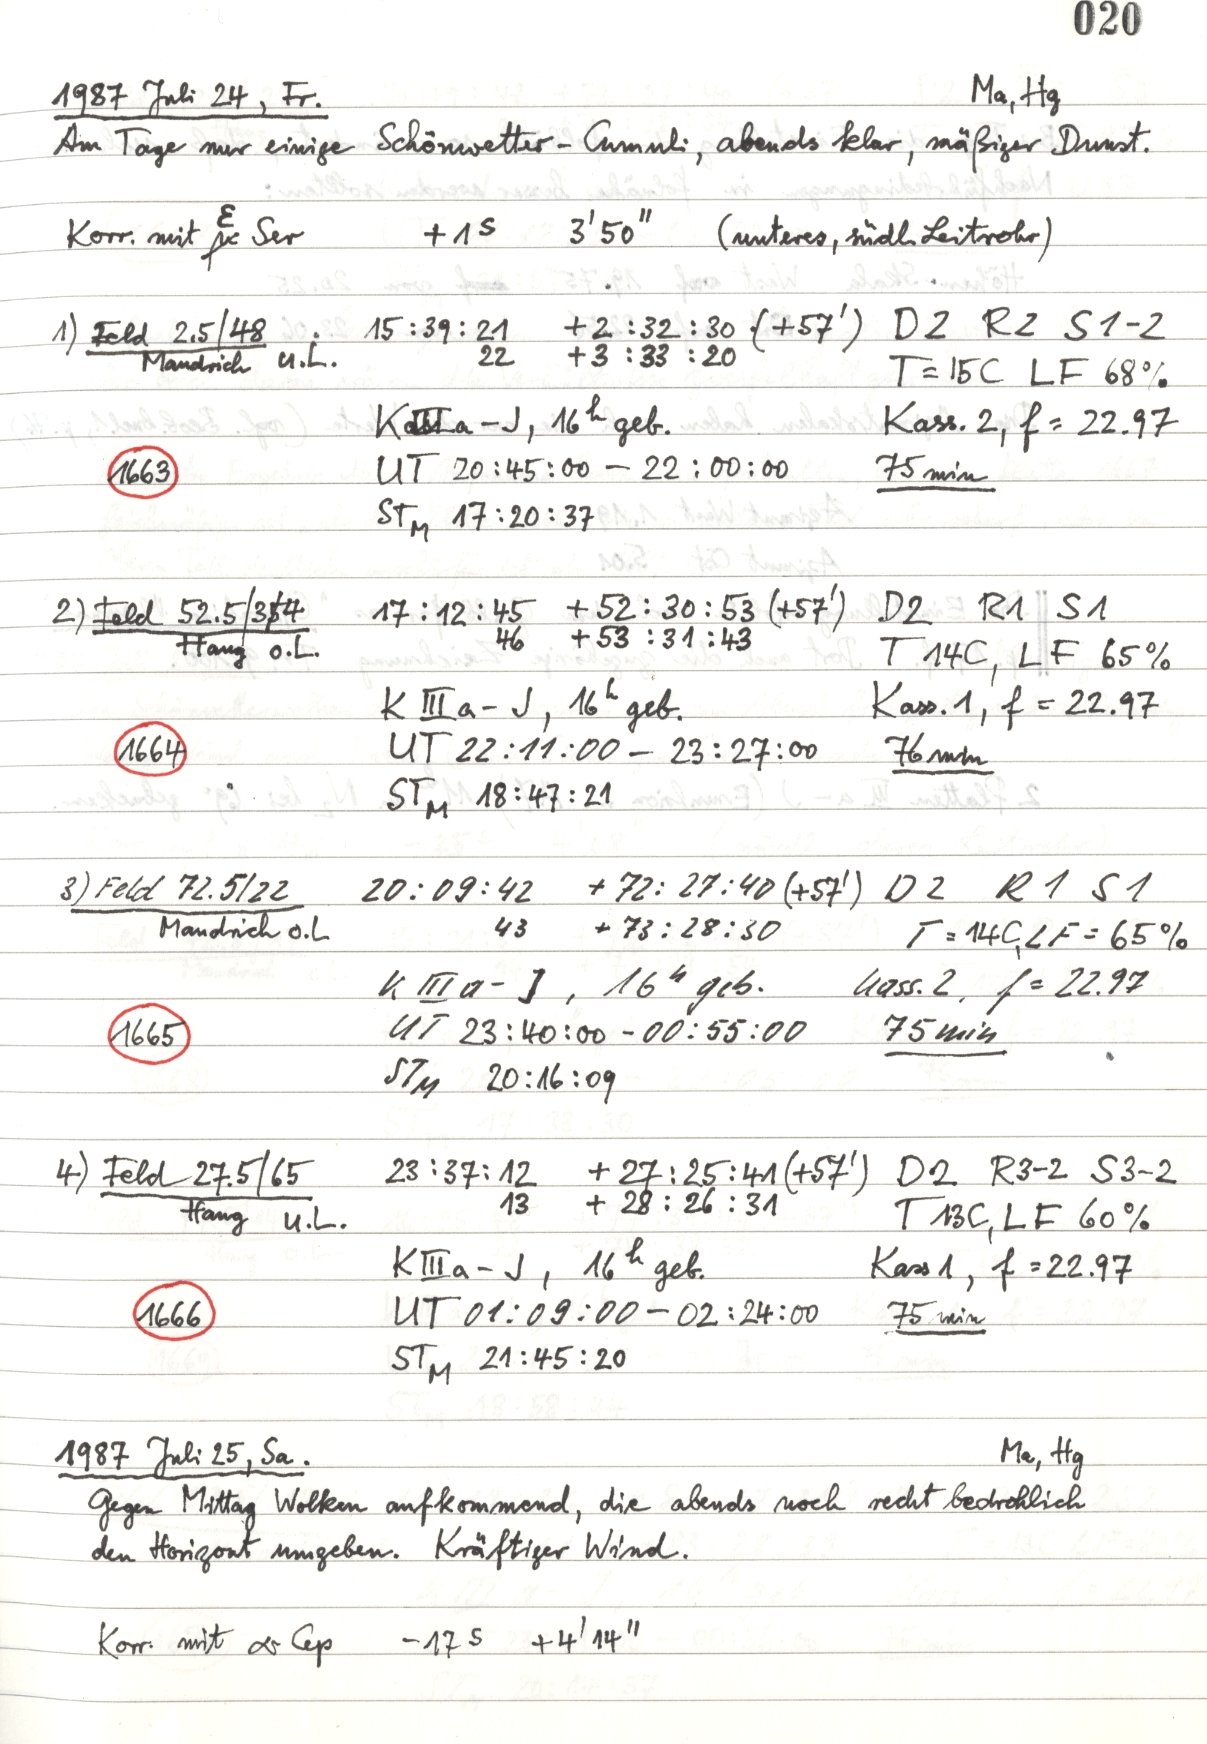 020
1987 Juli 24, Fr. Ma, Hg
Am Tage nur einige Schönwetter-Cumuli, abends klar, mäßiger Dunst.
Korr. mit ε Ser +1s 3'50" (unteres, südl. Leitrohr)
1) Feld 2.5/48 : 15:39:21 +2:32:30 (+57') D2 R2 S1-2
Mandrich u.L. 22 +3:33:20 T=15C LF 68%
K IIIa-J, 16h geb. Kass. 2, f = 22.97
1663 UT 20:45:00 - 22:00:00 75 min
STM 17:20:37
2) Feld 52.5/34 17:12:45 +52:30:53 (+57') D2 R1 S1
Hang o.L. 46 +53:31:43 T 14C, LF 65%
K IIIa-J, 16h geb. Kass. 1, f = 22.97
1664 UT 22:11:00 - 23:27:00 76 min
STM 18:47:21
3) Feld 72.5/22 20:09:42 +72:27:40 (+57') D2 R1 S1
Mandrich o.L 43 +73:28:30 T=14C, LF=65%
K IIIa-J, 16h geb. Kass. 2, f = 22.97
1665 UT 23:40:00 - 00:55:00 75 min
STM 20:16:09
4) Feld 27.5/65 23:37:12 +27:25:41 (+57') D2 R3-2 S3-2
Hang u.L. 13 +28:26:31 T 13C, LF 60%
K IIIa-J, 16h geb. Kass 1, f = 22.97
1666 UT 01:09:00 - 02:24:00 75 min
STM 21:45:20
1987 Juli 25, Sa. Ma, Hg
Gegen Mittag Wolken aufkommend, die abends noch recht bedrohlich
den Horizont umgeben. Kräftiger Wind.
Korr. mit α Cep -17s +4'14"